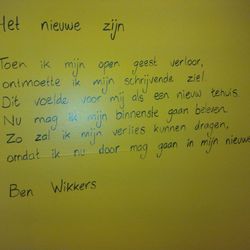 Het nieuwe zijn
Toen ik mijn open geest verloor,
ontmoette ik mijn schrijvende ziel.
Dit voelde voor mij als een nieuw tehuis.
Nu mag ik mijn binnenste gaan beleven.
Zo zal ik mijn verlies kunnen dragen,
omdat ik nu door mag gaan in mijn nieuwe
Ben Wikkers